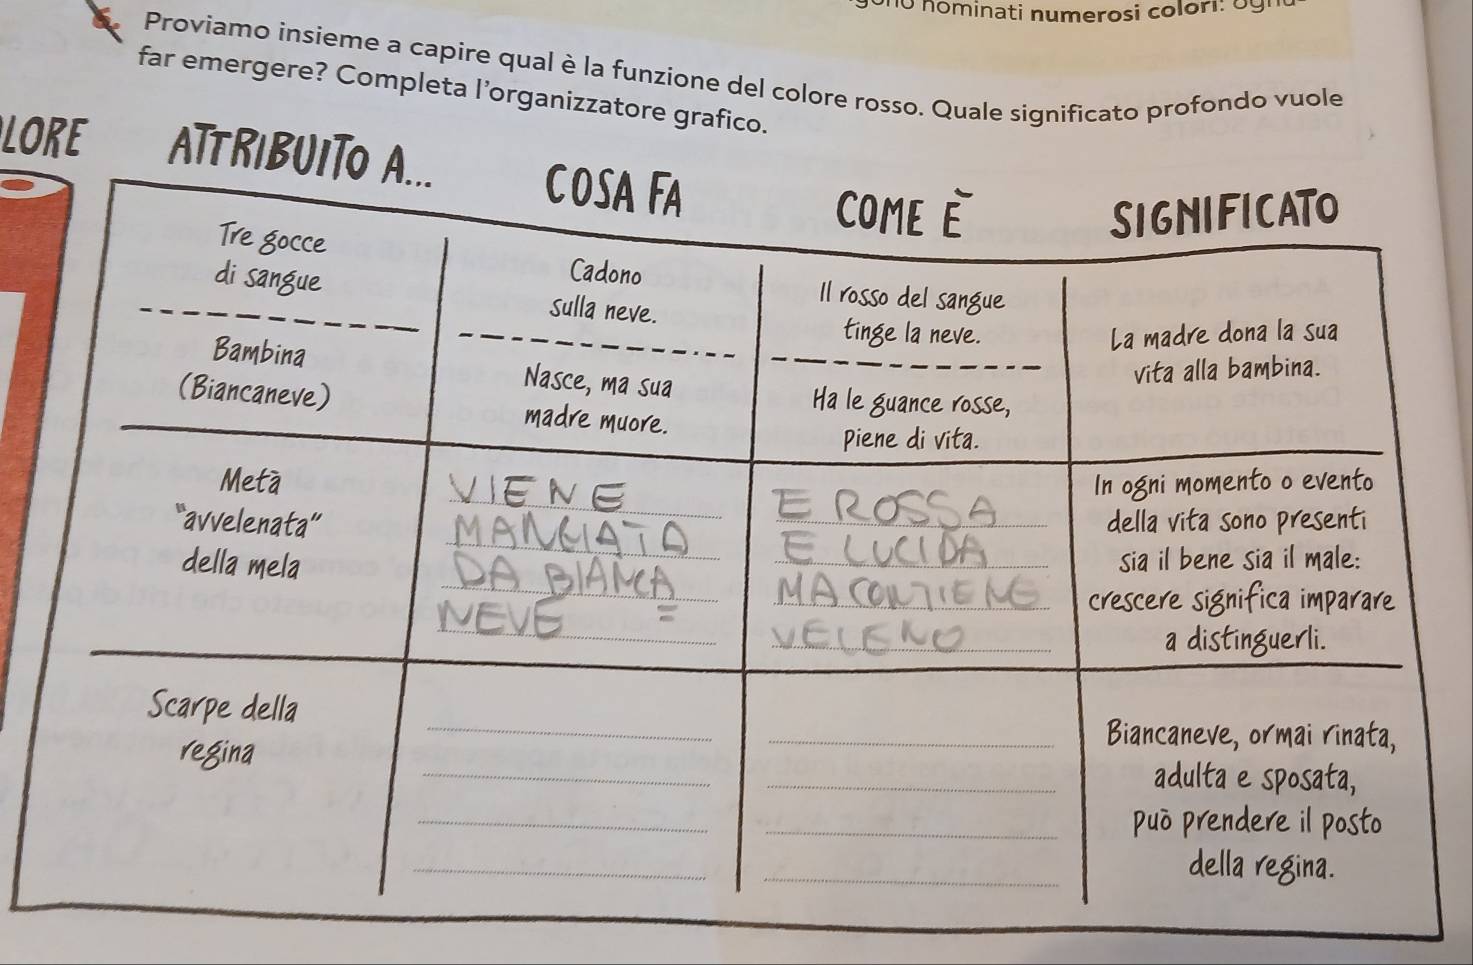 nominati numerosi colori:
6. Proviamo insieme a capire qual è la funzione del colore rosso. Quale significato profondo vuole
far emergere? Completa l'organizzatore grafico.
LORE ATTRIBUITO A... COSA FA COME È SIGNIFICATO
Tre gocce
di sangue
Cadono
sulla neve.
Il rosso del sangue
tinge la neve.
La madre dona la sua
vita alla bambina.
Bambina
(Biancaneve)
Nasce, ma sua
madre muore.
Ha le guance rosse,
piene di vita.
Metà
"avvelenata"
della mela
VIENE
MANGIATA
DA BIANCA
NEVE =
E ROSSA
E LUCIDA
MA CONTIENE
VELENO
In ogni momento o evento
della vita sono presenti
sia il bene sia il male:
crescere significa imparare
a distinguerli.
Scarpe della
regina
Biancaneve, ormai rinata,
adulta e sposata,
può prendere il posto
della regina.